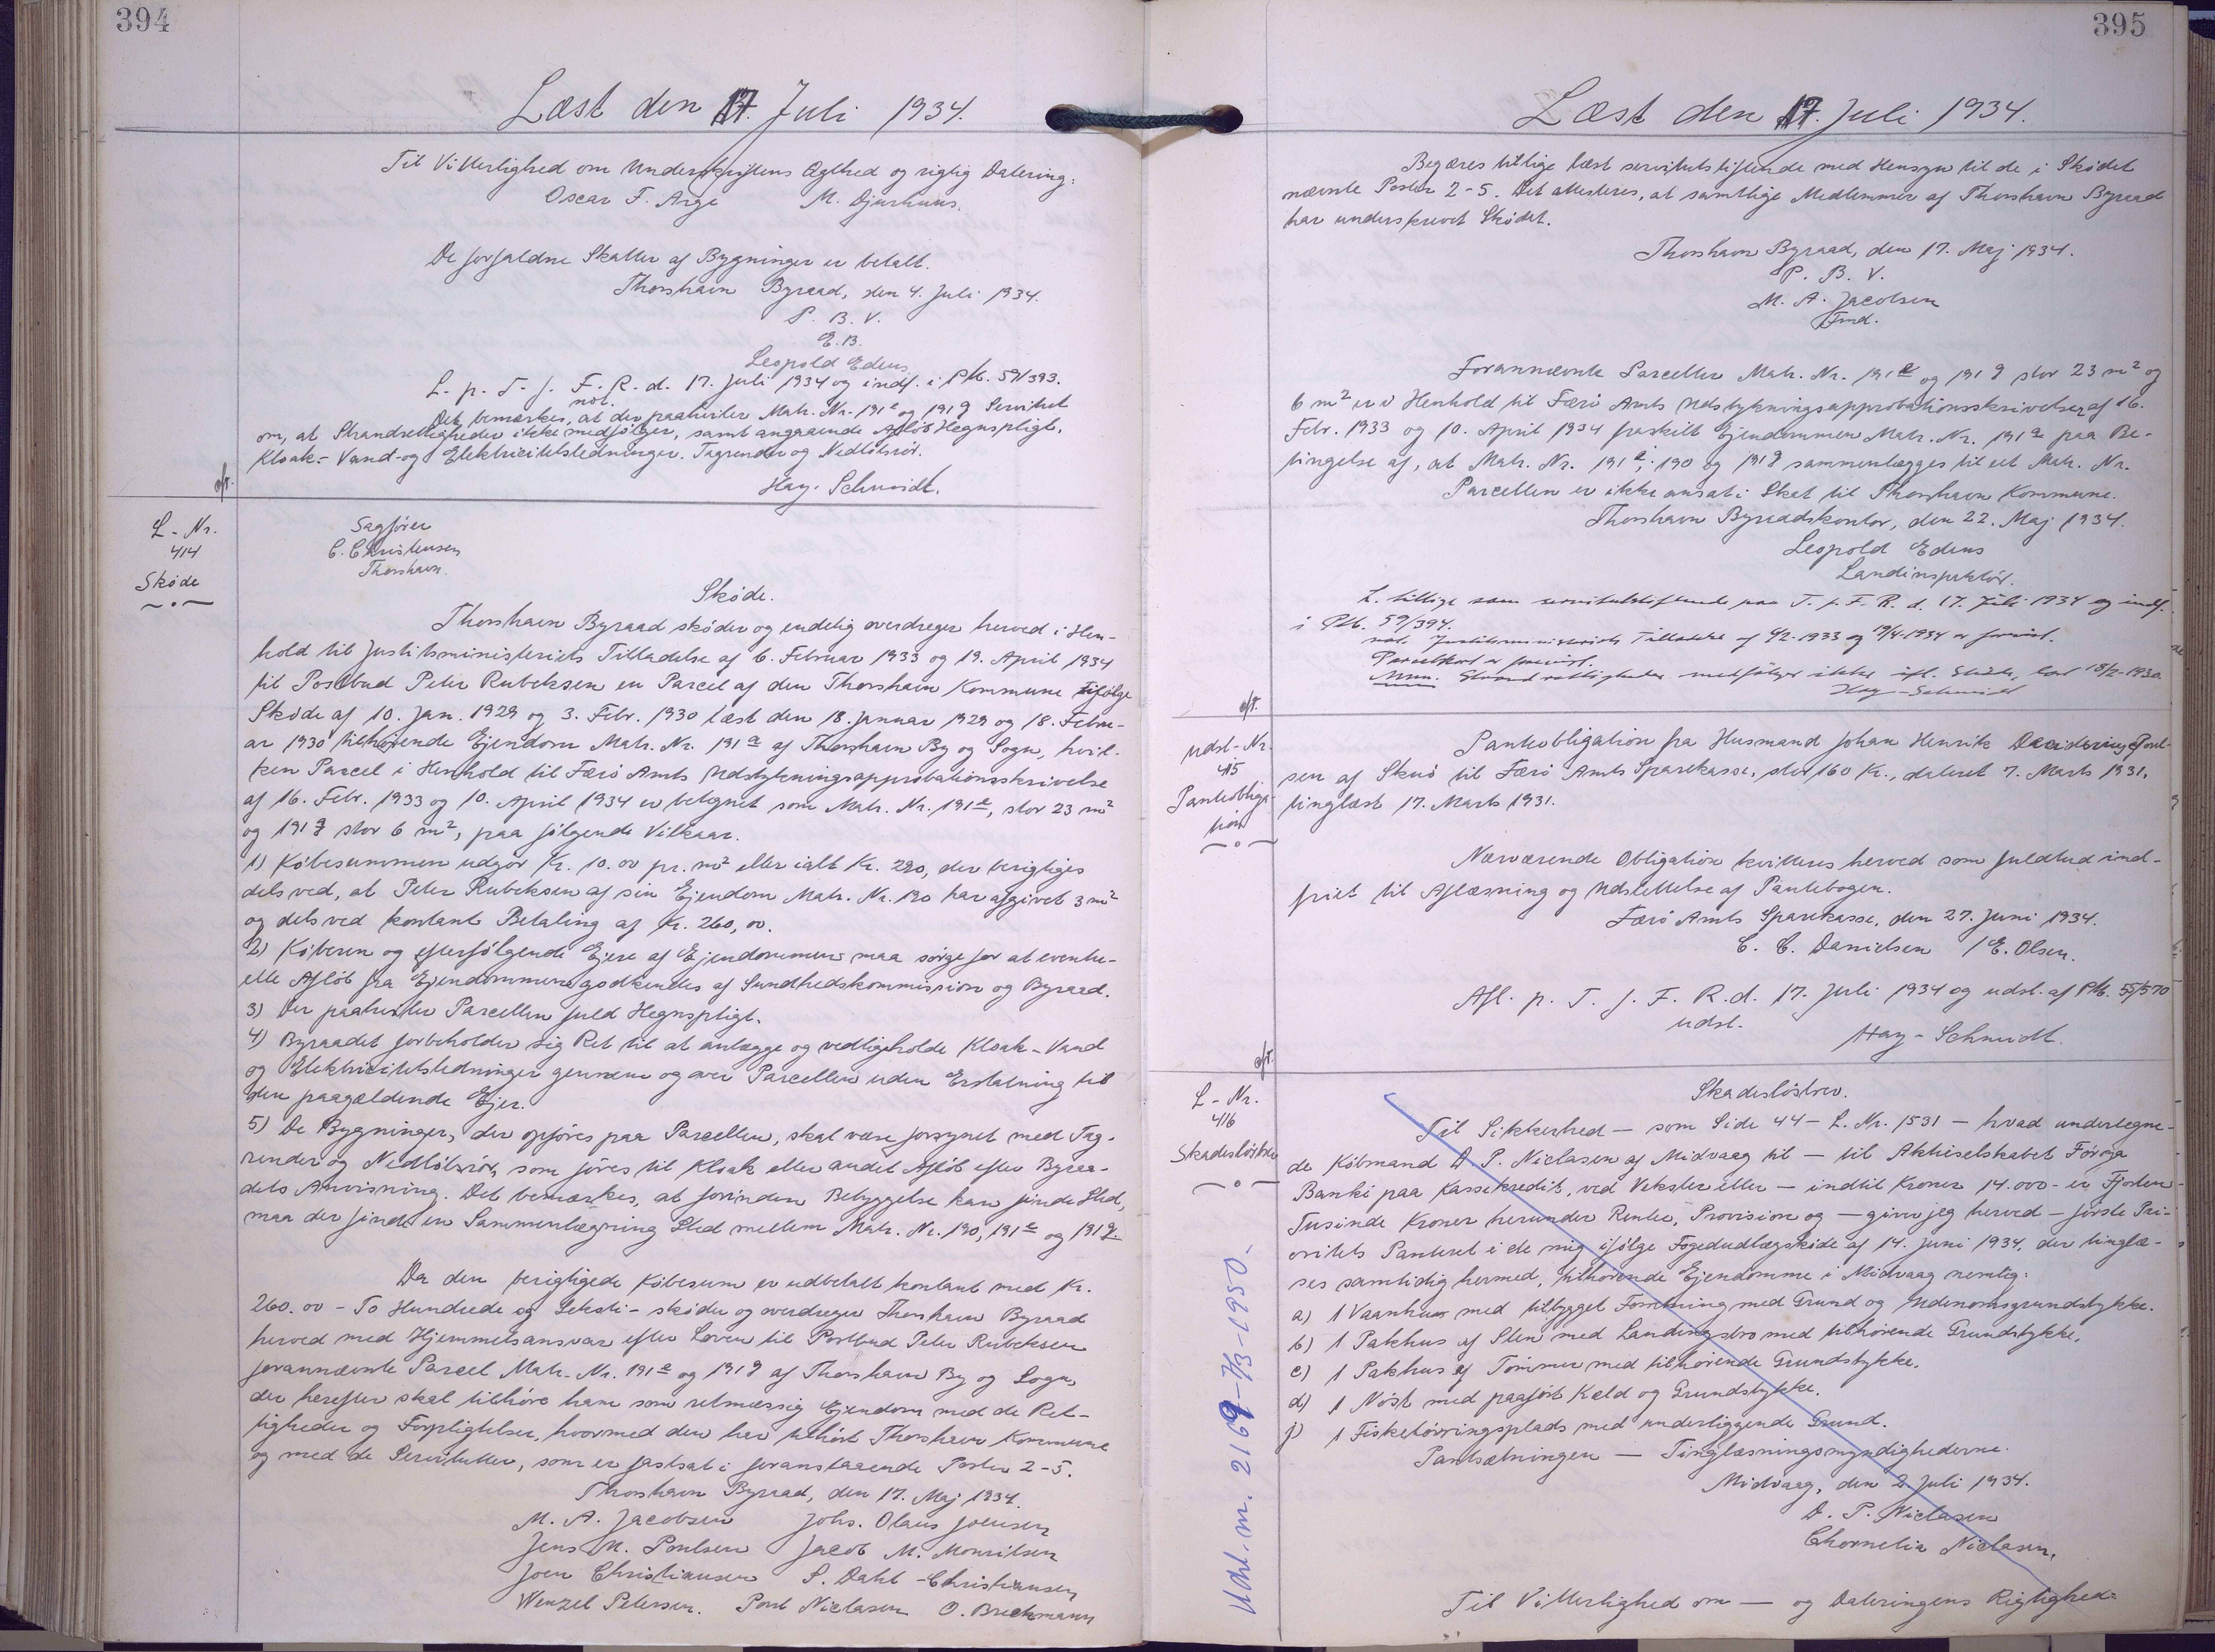 394
Læst den 17. Juli 1934.
Til Vitterlighed om Underskriftens Ægthed og rigtig Datering:
Oscar F. Arge M. Djurhuus.
De forfaldne Skatter af Bygninger er betalt.
Thorshavn Byraad, den 4. Juli 1934.
P. B. V.
E.B.
Leopold Edens
L. p. T. f. F. R. d. 17. Juli 1934 og indf. i Ptb. 59/393.
not.
Det bemærkes, at der paahviler Matr. Nr. 191e og 191g Servitut
om, at Strandrettigheder ikke medfølger, samt angaaende Afløb Hegnspligt,
Kloak- Vand- og Elektricitetsledninger. Tagrender og Nedløbsrör.
Hay-Schmidt.
L-Nr.
414
Skøde
Sagfører
C. Christensen
Thorshavn.
Skøde.
Thorshavn Byraad skøder og endelig overdrager herved i Hen-
hold til Justitsministeriets Tilladelse af 6. Februar 1933 og 19. April 1934
til Postbud Peter Rubeksen en Parcel af den Thorshavn Kommune ifølge
Skøde af 10. Jan. 1929 og 3. Febr. 1930 læst den 18. Januar 1929 og 18. Febru-
ar 1930 tilhørende Ejendom Matr. Nr. 191a af Thorshavn By og Sogn, hvil-
ken Parcel i Henhold til Færø Amts Udstykningsapprobationsskrivelse
af 16. Febr. 1933 og 10. April 1934 er betegnet som Matr. Nr. 191e, stor 23 m2
og 191g stor 6 m2, paa følgende Vilkaar.
1) Købesummen udgør Kr. 10.00 pr. m2 eller ialt Kr. 290, der berigtiges
dels ved, at Peter Rubeksen af sin Ejendom Matr. Nr. 190 har afgivet 3 m2
og dels ved kontant Betaling af Kr. 260,00.
2) Køberen og efterfølgende Ejere af Ejendommen maa sørge for at eventu-
elle Afløb fra Ejendommen godkendes af Sundhedskommission og Byraad.
3) Der paahviler Parcellen fuld Hegnspligt.
4) Byraadet forbeholder sig Ret til at anlægge og vedligeholde Kloak-Vand
og Elektricitetsledninger gennem og over Parcellen uden Erstatning til
den paagældende Ejer.
5) De Bygninger, der opføres paa Parcellen, skal være forsynet med Tag-
render og Nedløbsrör, som føres til Kloak eller andet Afløb efter Byraa-
dets Anvisning. Det bemærkes, at forinden Bebyggelse kan finde Sted,
maa der finde en Sammenlægning Sted mellem Matr. Nr. 190, 191e og 191g.
Da den berigtigede Købesum er udbetalt kontant med Kr.
260.00 - To Hundrede og Seksti - skøder og overdrager Thorshavn Byraad
herved med Hjemmelsansvar efter Loven til Postbud Peter Rubeksen
forannævnte Parcel Matr. Nr. 191e og 191g af Thorshavn By og Sogn,
der herefter skal tilhøre ham som retmæssig Ejendom med de Ret-
tigheder og Forpligtelser, hvormed den har tilhørt Thorshavn Kommune
og med de Servitutter, som er fastsat i foranstaaende Poster 2-5.
Thorshavn Byraad, den 17. Maj 1934.
M. A. Jacobsen Johs. Olaus Joensen
Jens M. Poulsen Jacob M. Mouritsen
Joen Christiansen S. Dahl-Christiansen
Wenzel Petersen. Poul Niclasen O. Brechmann
395
Læst den 17. Juli 1934.
Begæres tillige læst servitutstiftende med Hensyn til de i Skødet
nævnte Poster 2-5. Det attesteres, at samtlige Medlemmer af Thorshavn Byraad
har underskrevet Skødet.
Thorshavn Byraad, den 17. Maj 1934.
P. B. V.
M. A. Jacobsen
Fmd.
Forannævnte Parceller Matr. Nr. 191e og 191g stor 23 m2 og
6 m2 er i Henhold til Færø Amts Udstykningsapprobationsskrivelser af 16.
Febr. 1933 og 10. April 1934 fraskilt Ejendommen Matr. Nr. 191a paa Be-
tingelse af, at Matr. Nr. 191e, 190 og 191g sammenlægges til eet Matr. Nr.
Parcellen er ikke ansat i Skat til Thorshavn Kommune.
Thorshavn Byraadskontor, den 22. Maj 1934.
Leopold Edens
Landinspektör.
L. tillige som servitutstiftende paa T. f. F. R. d. 17. Juli 1934 og indf.
i Ptb. 59/394.
not. Justitsministeriets Tilladelse af 6/2-1933 og 19/4-1934 er forevist.
Parcelkort er forevist.
Anm. Strandrettigheder medfølger ikke ifl. Skøde, læst 18/2-1930.
Hay-Schmidt
Udsl-Nr.
415
Panteobliga-
tion
Panteobligation fra Husmand Johan Henrik Decidorius Poul-
sen af Skuö til Færö Amts Sparekasse, stor 160 Kr., dateret 7. Marts 1931,
tinglæst 17. Marts 1931.
Nærværende Obligation kvitteres herved som fuldtud ind-
friet til Aflæsning og Udslettelse af Pantebogen.
Færö Amts Sparekasse, den 27. Juni 1934.
C. C. Danielsen /E. Olsen.
Afl. p. T. f. F. R. d. 17. Juli 1934 og udsl. af Ptb. 55/570
udsl.
Hay-Schmidt.
L-Nr.
416
Skadesløsbrev
Skadesløsbrev.
Til Sikkerhed — som Side 44 - L. Nr. 1531 — hvad undertegne-
de Købmand D. P. Niclasen af Midvaag til — til Aktieselskabet Føroya
Banki paa Kassekredit, ved Veksler eller — indtil Kroner 14.000 - er Fjorten
Tusinde Kroner herunder Renter, Provision og — giver jeg herved — første Pri-
oritets Panteret i de mig ifølge Fogedudlægsskøde af 14. Juni 1934, der tinglæ-
ses samtidig hermed, tilhørende Ejendomme i Midvaag nemlig:
a) 1 Vaanhus med tilbygget Forretning med Grund og Udenomsgrundstykke.
b) 1 Pakhus af Sten med Landingsbro med tilhørende Grundstykke.
c) 1 Pakhus af Tømmer med tilhørende Grundstykke.
d) 1 Nøst med paaført Kæld og Grundstykke.
f) 1 Fisketørringsplads med underliggende Grund.
Pantsætningen — Tinglæsningsmyndighederne.
Midvaag, den 2 Juli 1934.
D. P. Niclasen
Chornelia Niclasen.
Til Vitterlighed om — og Dateringens Rigtighed:
Udsl. m. 2169-7/3-1950-